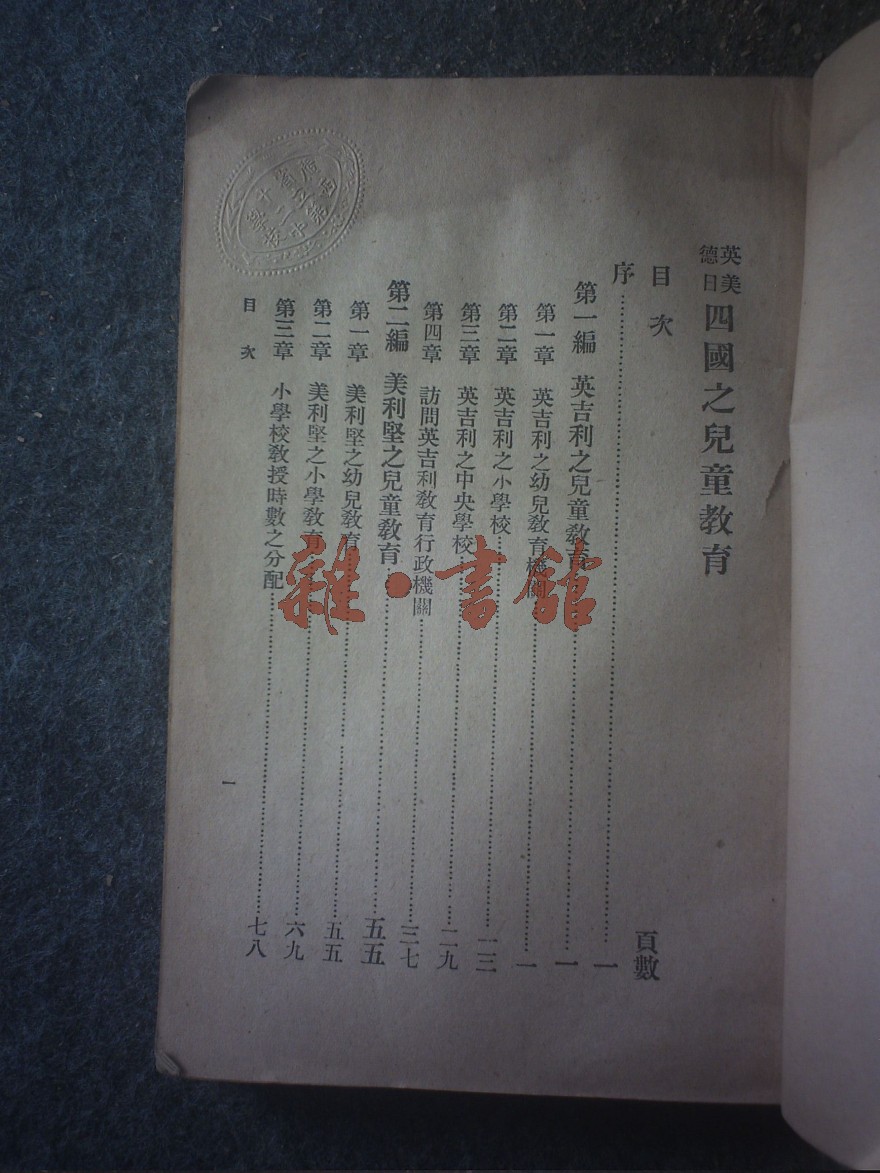 英美德日四國之兒童教育
目次
頁數
序……一
第一編 英吉利之兒童教育……一
第一章 英吉利之幼兒教育機關……一
第二章 英吉利之小學校……一三
第三章 英吉利之中央學校……二九
第四章 訪問英吉利教育行政機關……三七
第二編 美利堅之兒童教育……五五
第一章 美利堅之幼兒教育……五五
第二章 美利堅之小學教育……六九
第三章 小學校教授時數之分配……七八
目次
一
雜·書館